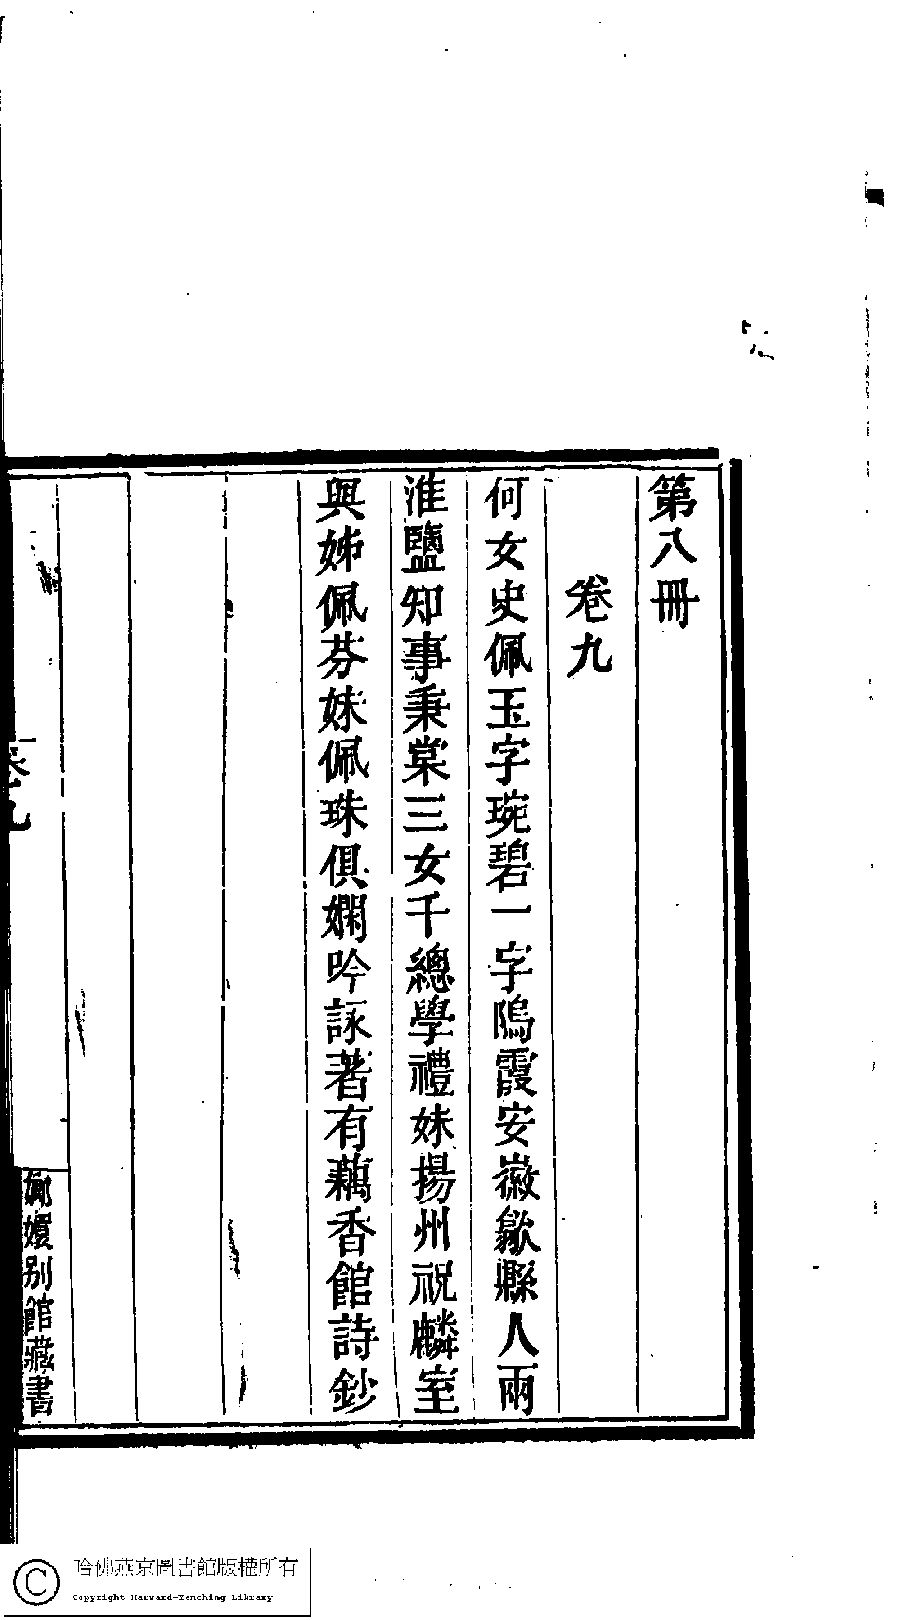 第八冊
卷九
何女史佩玉字琬碧一字隖霞安徽歙縣人兩
淮鹽知事秉棠三女千總學禮妹揚州祝麟室
與姊佩芬妹佩珠俱嫻吟詠著有藕香館詩鈔
卷九
嫏嬛別館藏書
哈佛燕京圖書館版權所有
Copyright Harvard-Yenching Library